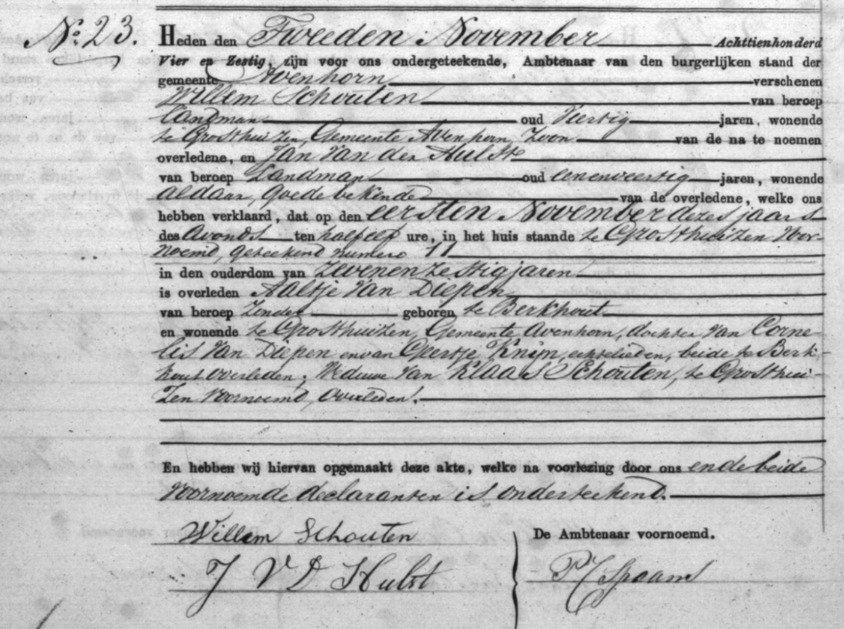 No. 23.
Heden den Tweeden November Achttienhonderd
Vier en Zestig, zijn voor ons ondergeteekende, Ambtenaar van den burgerlijken stand der
gemeente Avenhorn verschenen
Willem Schouten van beroep
Landman oud Veertig jaren, wonende
te Grosthuizen, Gemeente Avenhorn, Zoon van de na te noemen
overledene, en Jan Van der Hulst
van beroep Landman oud eenenveertig jaren, wonende
aldaar, goede bekende van de overledene, welke ons
hebben verklaard, dat op den eersten November dezes jaars
des Avonds ten half elf ure, in het huis staande te Grosthuizen Voor-
noemd, geteekend numero 11
in den ouderdom van Zevenenzestig jaren
is overleden Aaltje Van Diepen
van beroep Zonder geboren te Berkhout
en wonende te Grosthuizen, Gemeente Avenhorn, dochter Van Corne-
lis Van Diepen en van Geertje Knijn, echtelieden, beide te Berk-
hout overleden; Weduwe Van Klaas Schouten, te Grosthui-
zen voornoemd, overleden.
En hebben wij hiervan opgemaakt deze akte, welke na voorlezing door ons en de beide
voornoemde declaranten is onderteekend.
Willem Schouten De Ambtenaar voornoemd.
J V D Hulst